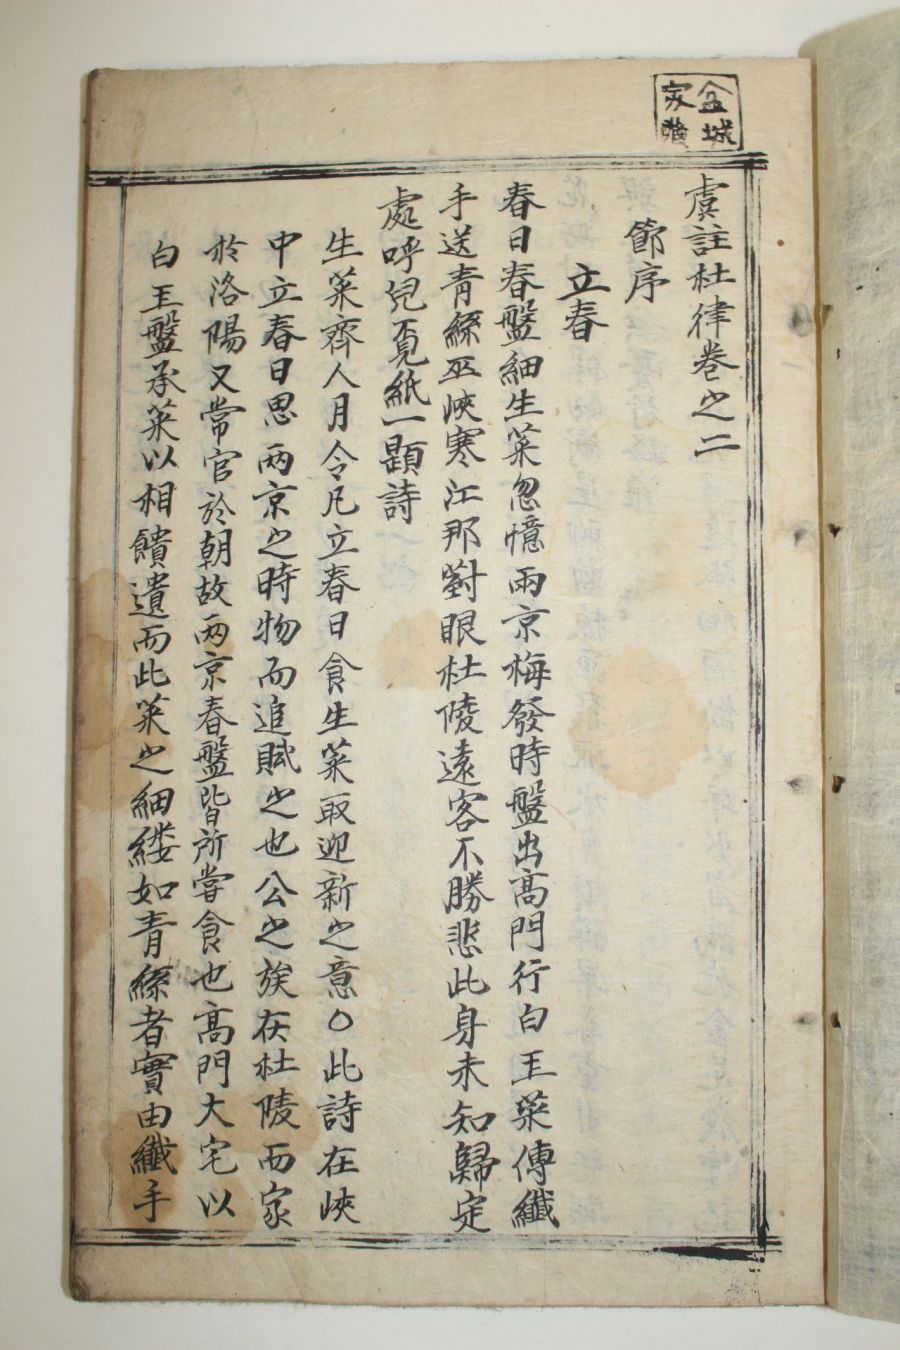 金城
家藏
虞註杜律卷之二
節序
立春
春日春盤細生菜忽憶兩京梅發時盤出高門行白玉菜傳纖
手送青絲巫峽寒江那對眼杜陵遠客不勝悲此身未知歸定
處呼兒覓紙一題詩
生菜齊人月令凡立春日食生菜取迎新之意〇此詩在峽
中立春日思兩京之時物而追賦之也公之族在杜陵而家
於洛陽又常官於朝故兩京春盤皆所嘗食也高門大宅以
白玉盤承菜以相饋遺而此菜之細縷如青絲者實由纖手